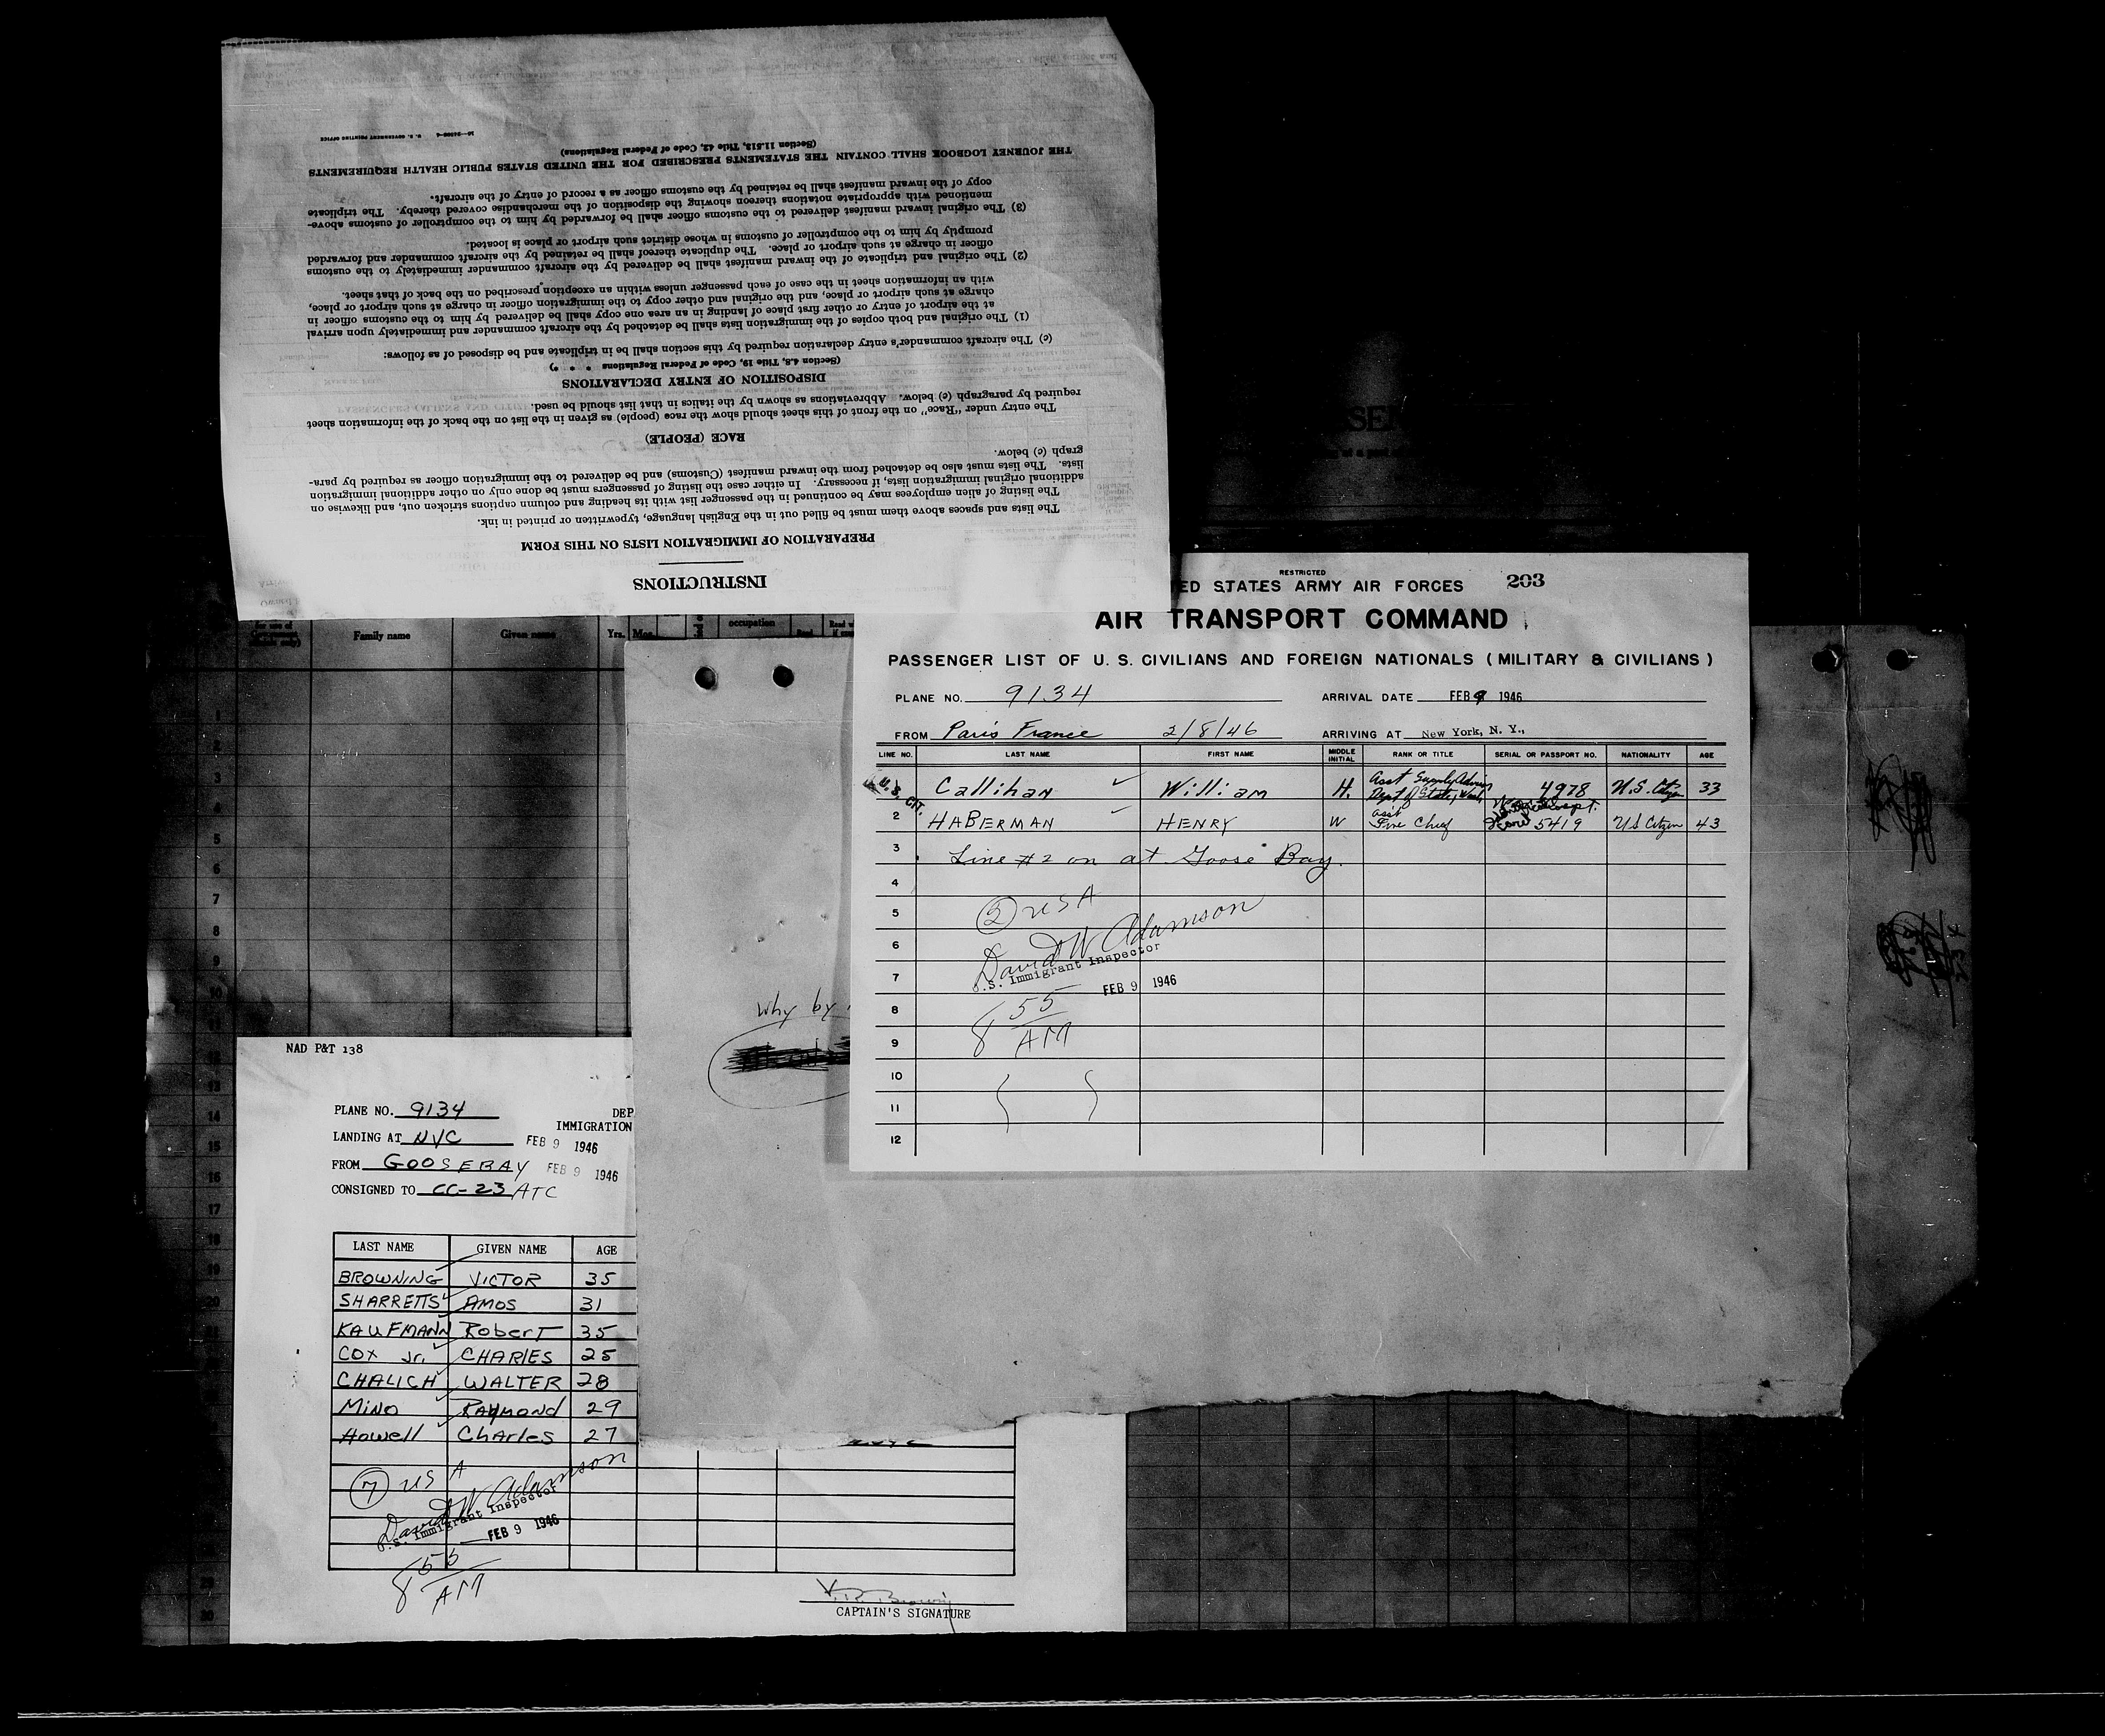 INSTRUCTIONS
PREPARATION OF IMMIGRATION LISTS ON THIS FORM
The lists and spaces above them must be filled out in the English language, typewritten or printed in ink.
The listing of alien employees may be continued in the passenger list with its heading and column captions stricken out, and likewise on
additional original immigration lists, if necessary. In either case the listing of passengers must be done only on other additional immigration
lists. The lists must also be detached from the inward manifest (Customs) and be delivered to the immigration officer as required by para-
graph (c) below.
RACE (PEOPLE)
The entry under "Race" on the front of this sheet should show the race (people) as given in the list on the back of the information sheet
required by paragraph (c) below. Abbreviations as shown by the italics in that list should be used.
DISPOSITION OF ENTRY DECLARATIONS
(Section 4.8, Title 19, Code of Federal Regulations * * *)
(c) The aircraft commander's entry declaration required by this section shall be in triplicate and be disposed of as follows:
(1) The original and both copies of the immigration lists shall be detached by the aircraft commander and immediately upon arrival
at the airport of entry or other first place of landing in an area one copy shall be delivered by him to the customs officer in
charge at such airport or place, and the original and other copy to the immigration officer in charge at such airport or place,
with an information sheet in the case of each passenger unless within an exception prescribed on the back of that sheet.
(2) The original and triplicate of the inward manifest shall be delivered by the aircraft commander immediately to the customs
officer in charge at such airport or place. The duplicate thereof shall be retained by the aircraft commander and forwarded
promptly by him to the comptroller of customs in whose district such airport or place is located.
(3) The original inward manifest delivered to the customs officer shall be forwarded by him to the comptroller of customs above-
mentioned with appropriate notations thereon showing the disposition of the merchandise covered thereby. The triplicate
copy of the inward manifest shall be retained by the customs officer as a record of entry of the aircraft.
THE JOURNEY LOGBOOK SHALL CONTAIN THE STATEMENTS PRESCRIBED FOR THE UNITED STATES PUBLIC HEALTH REQUIREMENTS
(Section 11.513, Title 42, Code of Federal Regulations)
U. S. GOVERNMENT PRINTING OFFICE
Family name Given name Yrs. Mos. occupation Read
RESTRICTED
ED STATES ARMY AIR FORCES 203
AIR TRANSPORT COMMAND
PASSENGER LIST OF U. S. CIVILIANS AND FOREIGN NATIONALS ( MILITARY & CIVILIANS )
PLANE NO. 9134 ARRIVAL DATE FEB 9 1946
FROM Paris France 2/8/46 ARRIVING AT New York, N. Y.,
LINE NO. LAST NAME FIRST NAME MIDDLE INITIAL RANK OR TITLE SERIAL OR PASSPORT NO. NATIONALITY AGE
U.S. CIT. Callihan William H. Asst Supply Dept of State, 4978 U.S. Citizen 33
2 HABERMAN HENRY W Asst Fire Chief 5419 US Citizen 43
3 Line #2 on at Goose Bay.
4
5 (2) USA
6 David W Adamson
7 U.S. Immigrant Inspector
FEB 9 1946
8 8 55
9 AM
10
11
12
why by
NAD P&T 138
PLANE NO. 9134 DEP
IMMIGRATION
LANDING AT NYC FEB 9 1946
FROM GOOSEBAY FEB 9 1946
CONSIGNED TO CC-23 ATC
LAST NAME GIVEN NAME AGE
BROWNING VICTOR 35
SHARRETTS AMOS 31
KAUFMANN Robert 35
COX Jr. CHARLES 25
CHALICH WALTER 28
MINO RAYMOND 29
Howell Charles 27
(7) US A
David W Adamson
U.S. Immigrant Inspector
FEB 9 1946
8 55
AM
CAPTAIN'S SIGNATURE